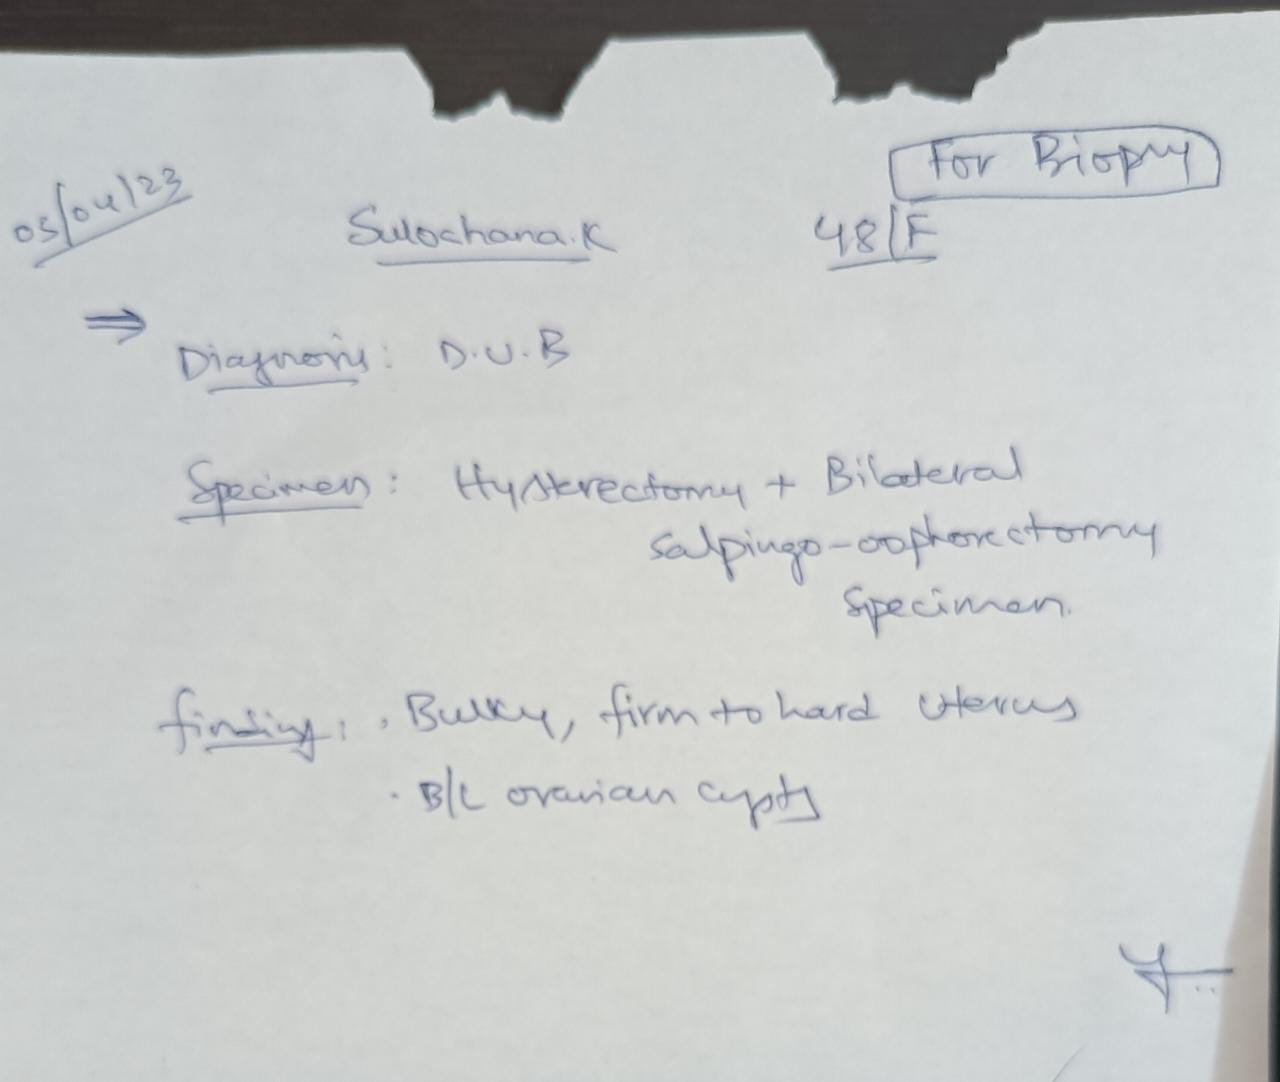 For Biopsy
05/04/23
Sulochana.K 48/F
⇒
Diagnosis: D.U.B
Specimen: Hysterectomy + Bilateral
salpingo-oophorectomy
specimen.
finding: . Bulky, firm to hard uterus
. B/L ovarian cysts